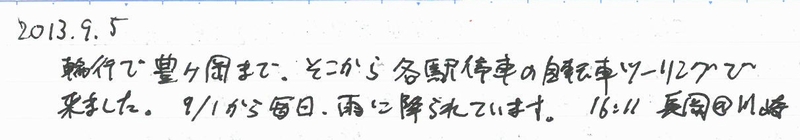 2013.9.5
輪行で豊ヶ岡まで。そこから各駅停車の自転車ツーリングで
来ました。9/1から毎日、雨に降られています。 16:11 兵岡@川崎